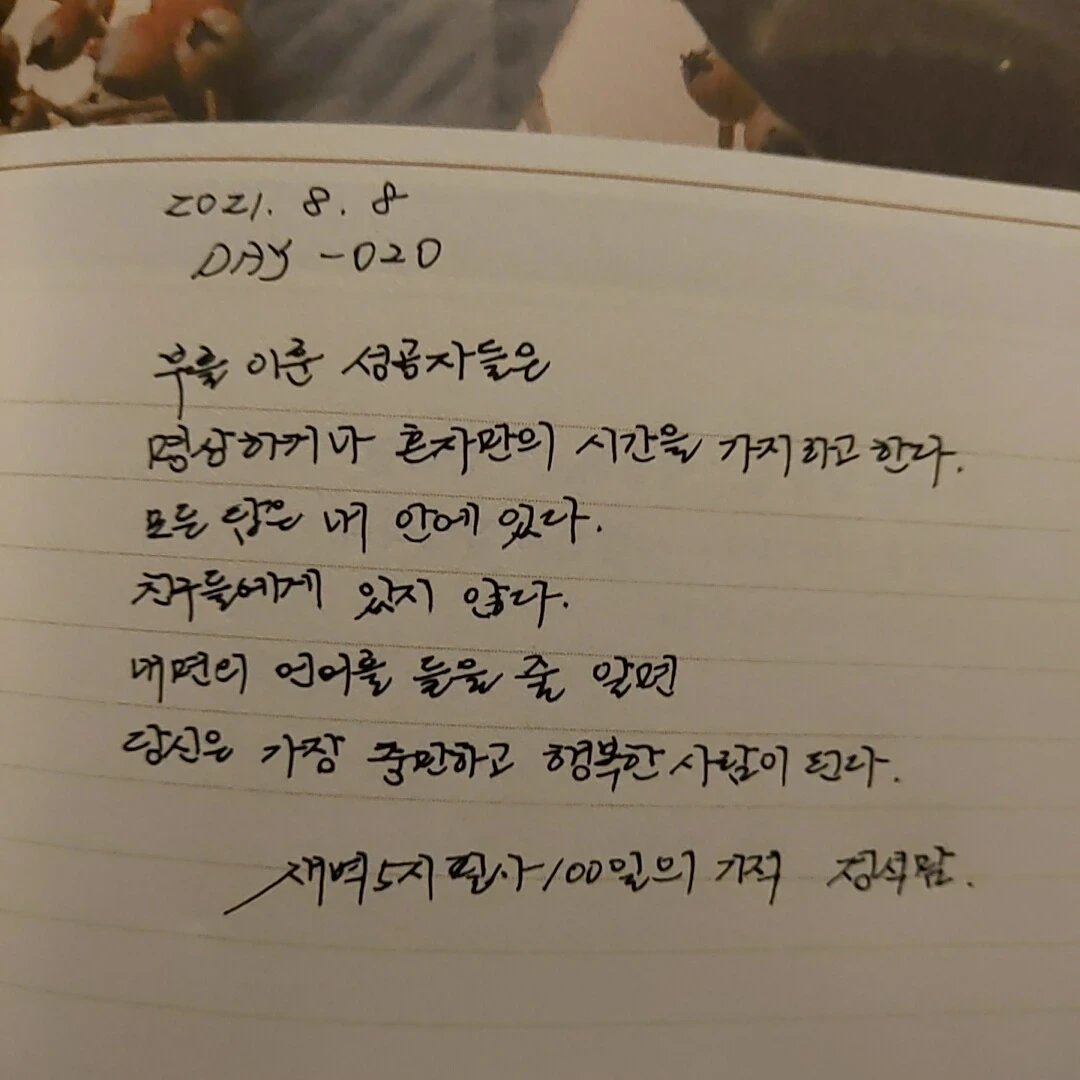 2021. 8. 8
DAY - 020
부를 이룬 성공자들은
명상하거나 혼자만의 시간을 가지라고 한다.
모든 답은 내 안에 있다.
친구들에게 있지 않다.
내면의 언어를 들을 줄 알면
당신은 가장 충만하고 행복한 사람이 된다.
새벽 5시 필사 100일의 기적